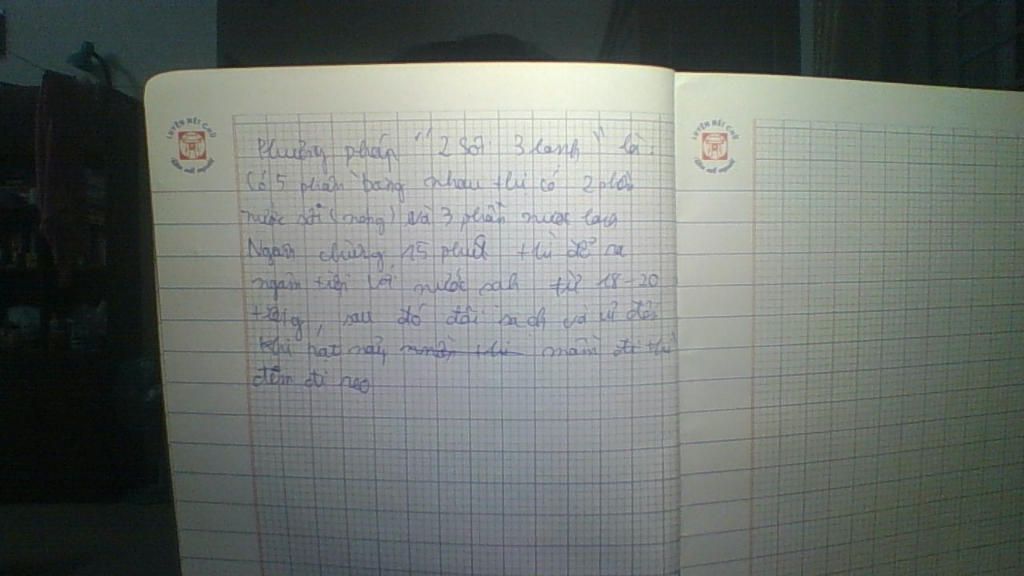 LUYỆN NÉT CHỮ
LUYỆN NÉT CHỮ
Phương pháp "2 sôi 3 lạnh" là:
Có 5 phần bằng nhau thì có 2 phần
nước sôi (nóng) và 3 phần nước lạnh
Ngâm chừng 15 phút thì để ra
ngâm tiếp với nước sạch từ 18-20
tiếng, sau đó đãi sạch và ủ đến
khi hạt nảy mầm thì
đem đi gieo